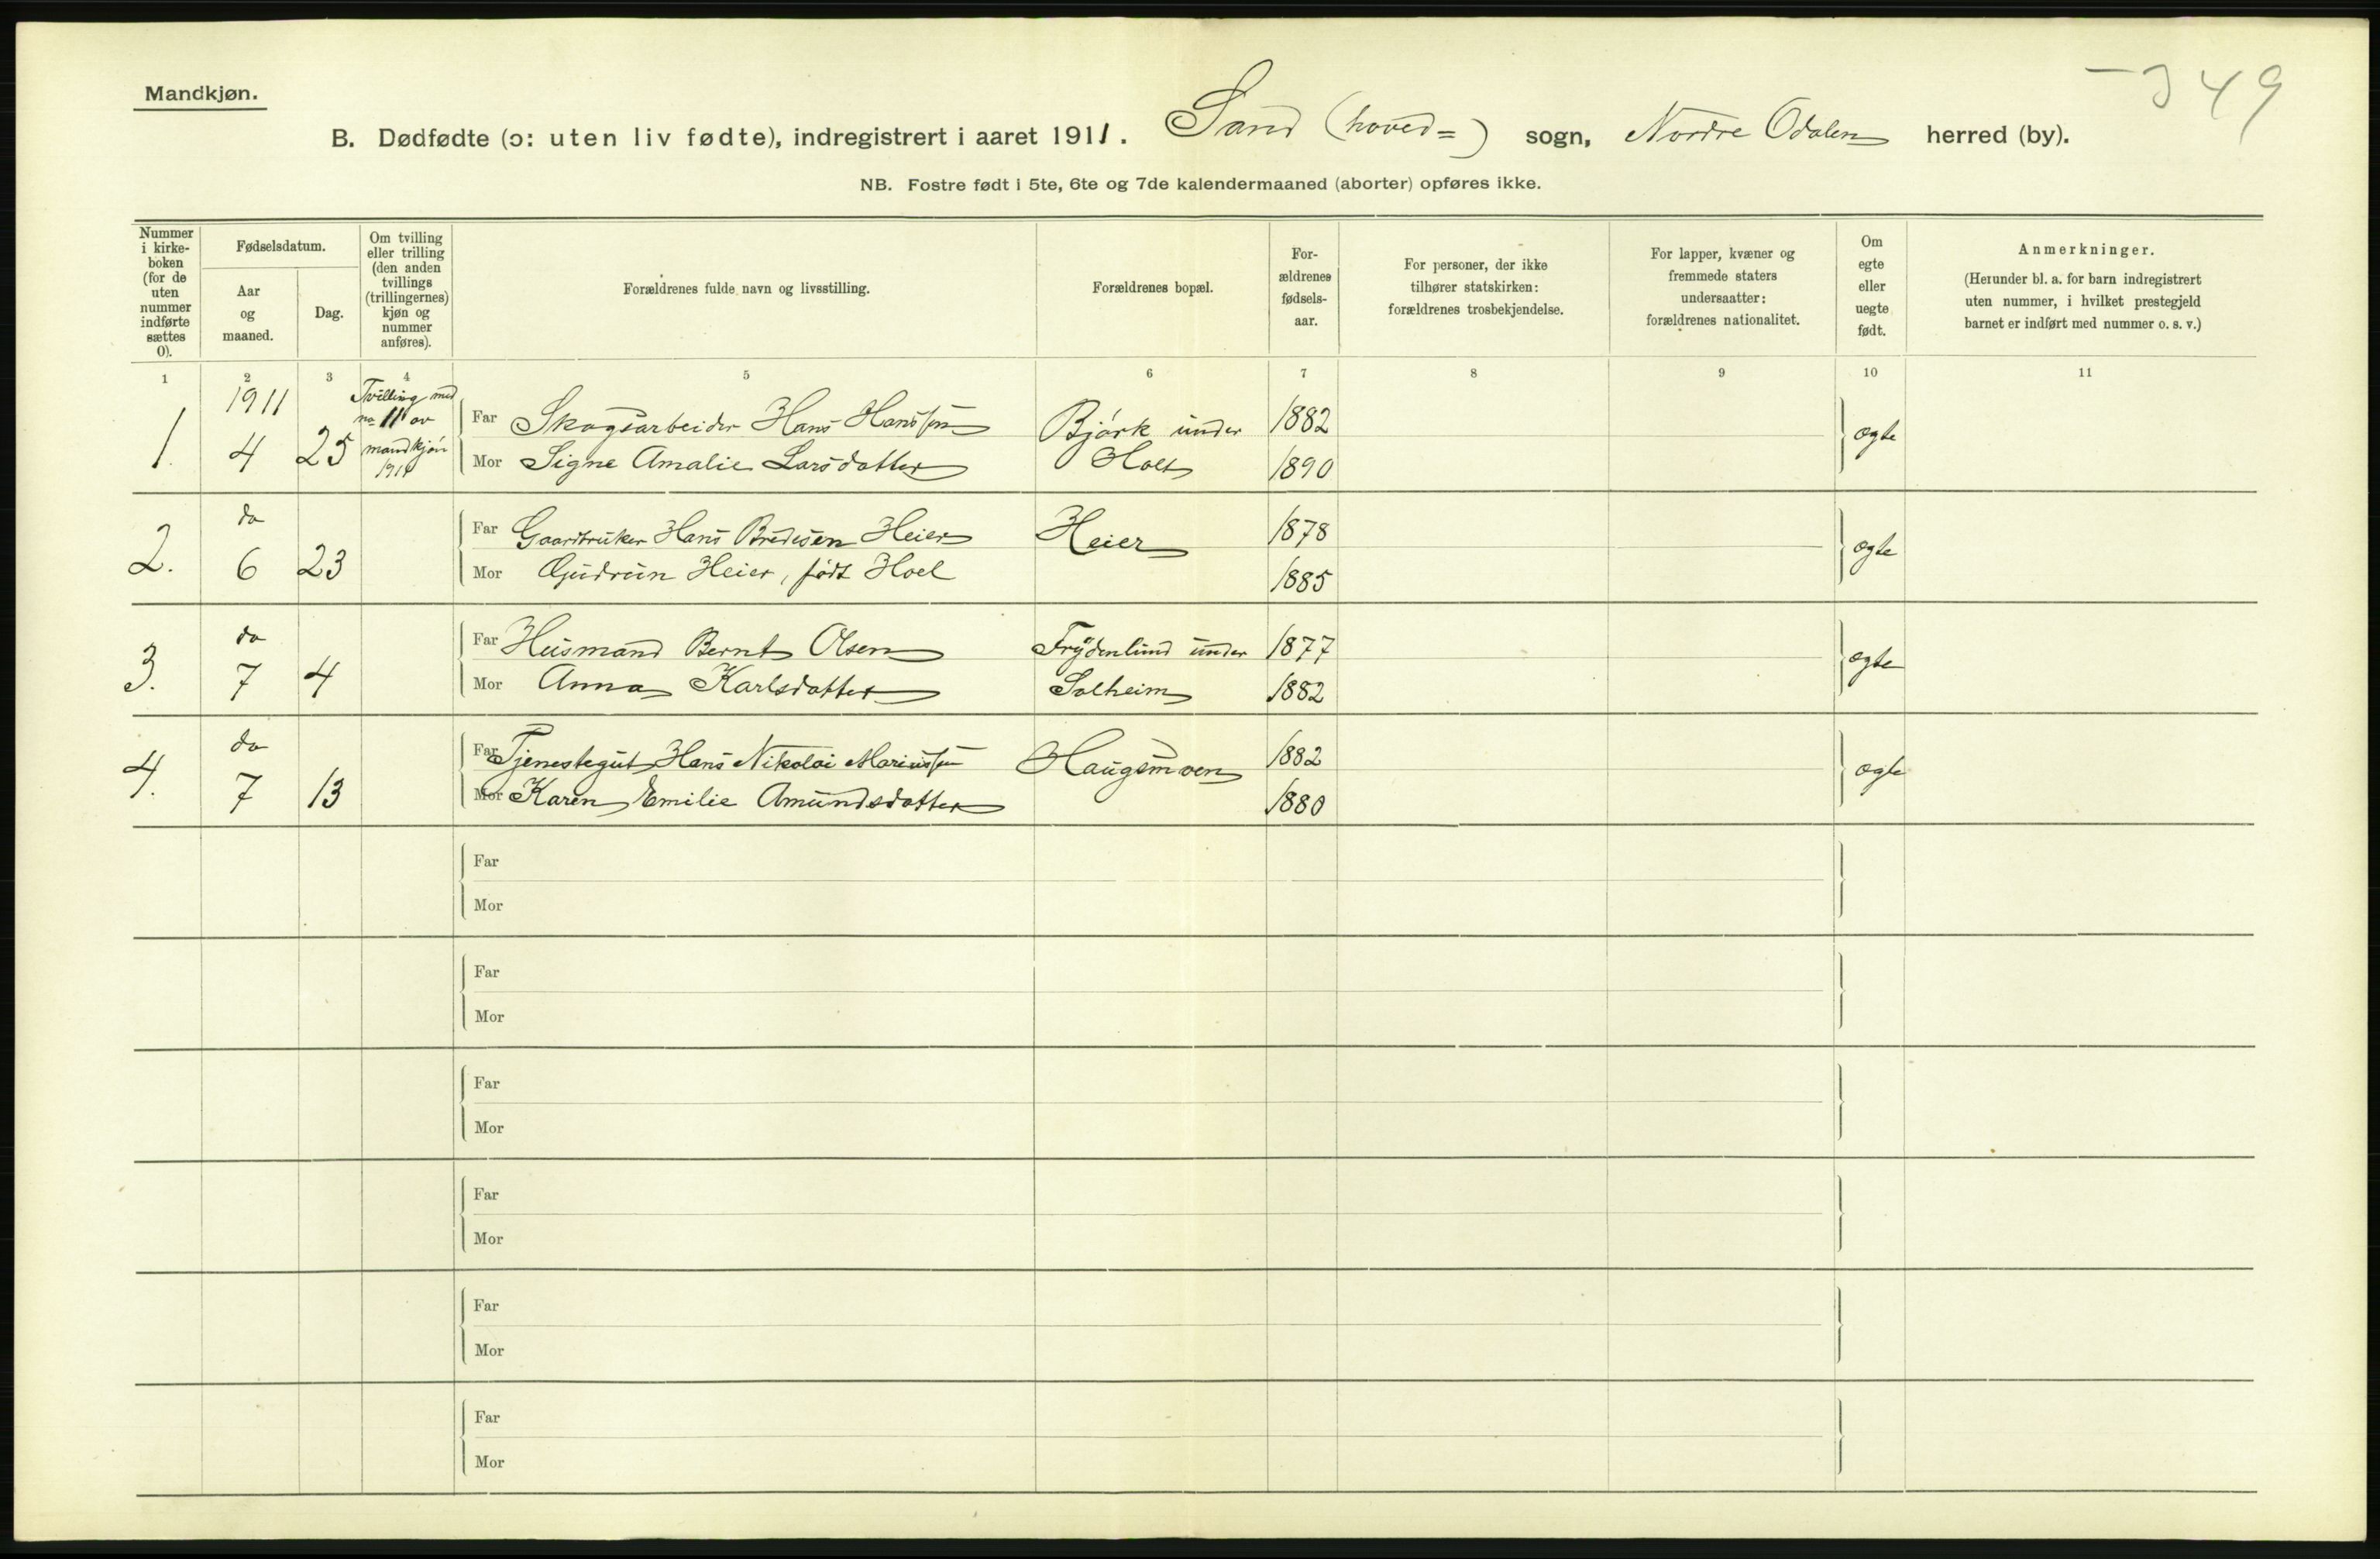 Mandkjøn.
349
B. Dødfødte (ɔ: uten liv fødte), indregistrert i aaret 1911. Sand (hoved=) sogn, Nordre Odalen herred (by).
NB. Fostre født i 5te, 6te og 7de kalendermaaned (aborter) opføres ikke.
Nummer
i kirke-
boken
(for de
uten
nummer
indførte
sættes
0).
Fødselsdatum.
Aar
og
maaned.
Dag.
Om tvilling
eller trilling
(den anden
tvillings
(trillingernes)
kjøn og
nummer
anføres).
Forældrenes fulde navn og livsstilling.
Forældrenes bopæl.
For-
ældrenes
fødsels-
aar.
For personer, der ikke
tilhører statskirken:
forældrenes trosbekjendelse.
For lapper, kvæner og
fremmede staters
undersaatter:
forældrenes nationalitet.
Om
egte
eller
uegte
født.
Anmerkninger.
(Herunder bl. a. for barn indregistrert
uten nummer, i hvilket prestegjeld
barnet er indført med nummer o. s. v.)
1 2 3 4 5 6 7 8 9 10 11
1. 1911 4 25
Tvilling med
no 11 av
mandkjøn
1911
Far Skogsarbeider Hans Hanssen Bjørk under 1882
Mor Signe Amalie Larsdatter Holt 1890
ægte
2. do 6 23
Far Gaardbruker Hans Bredesen Heier Heier 1878
Mor Gudrun Heier, født Hoel 1885
ægte
3. do 7 4
Far Husmand Bernt Olsen Frydenlund under 1877
Mor Anna Karlsdatter Solheim 1882
ægte
4. do 7 13
Far Tjenestegut Hans Nikolai Mariussen Haugsmoen 1882
Mor Karen Emilie Amundsdatter 1880
ægte
Far
Mor
Far
Mor
Far
Mor
Far
Mor
Far
Mor
Far
Mor